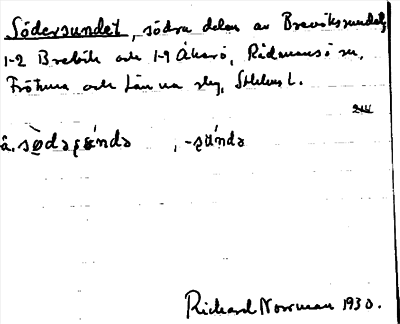 Södersundet, södra delen av Breviksundet,
1-2 Brevik och 1-9 Åkerö, Rådmansö sn,
Frötuna och Länna slg, Sthlms l.
å. sø̀dəʂúndə , -súndə
Richard Norrman 1930.